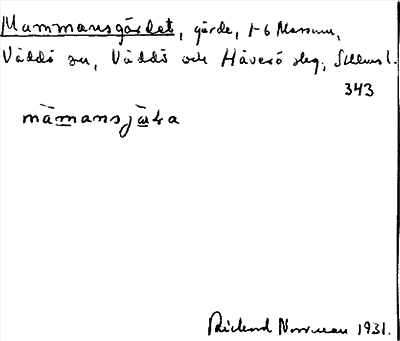 Mammansgärdet, gärde, 1-6 Massum,
Väddö sn, Väddö och Häverö skg, Sthms l.
343
mamansjäɽa
Rickard Norrman 1931.